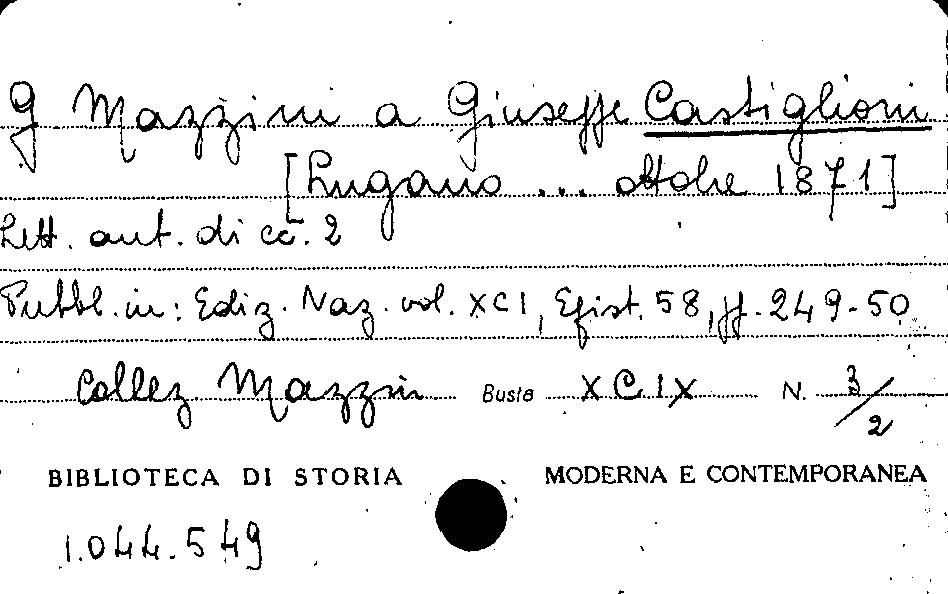 G Mazzini a Giuseppe Castiglioni
[Lugano ... ottobre 1871]
Lett. aut. di cc. 2
Pubbl. in: Ediz. Naz. vol. XCI, Epist. 58, pp. 249-50
Collez Mazzini Busta XCIX N. 3/2
BIBLIOTECA DI STORIA MODERNA E CONTEMPORANEA
1.044.549